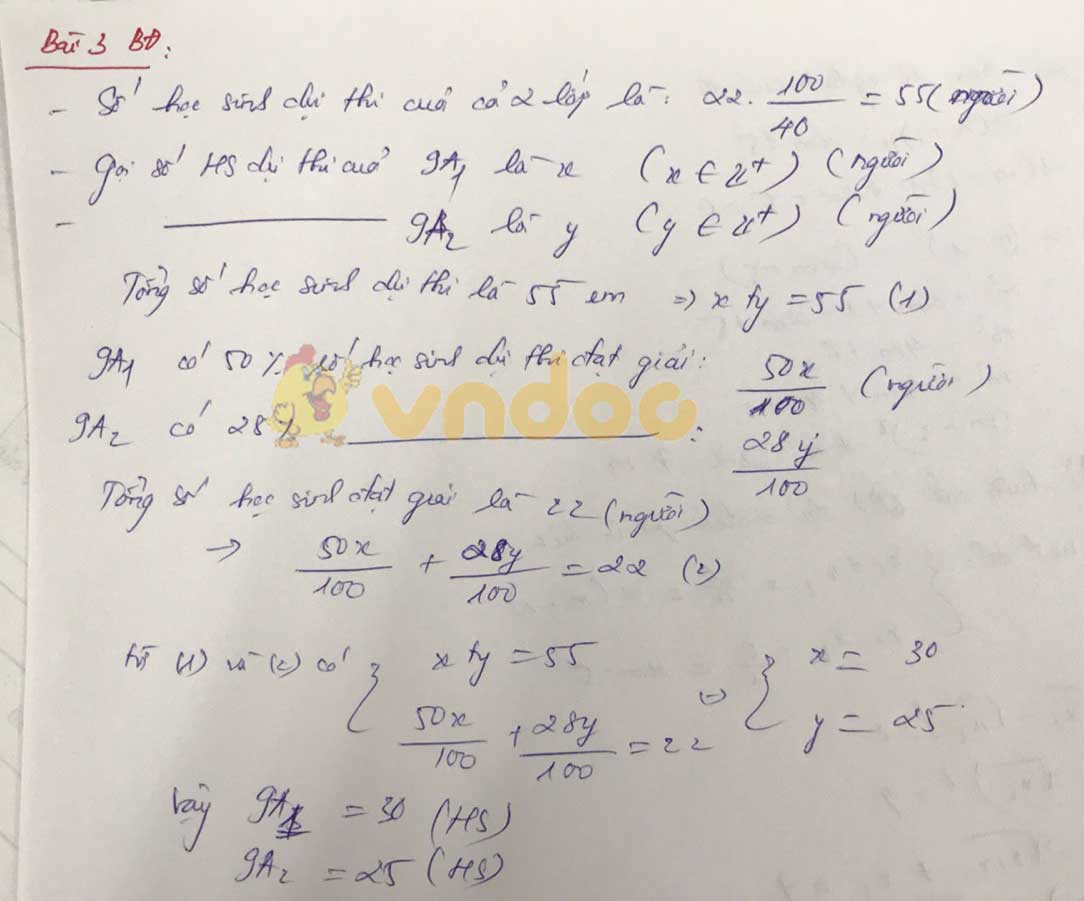 Bài 3 BĐ:
- Số học sinh dự thi của cả 2 lớp là: 22. 100/40 = 55 (người)
- Gọi số HS dự thi của 9A1 là x (x ∈ Z+) (người)
- ———— 9A2 là y (y ∈ Z+) (người)
Tổng số học sinh dự thi là 55 em => x + y = 55 (1)
9A1 có 50% số học sinh dự thi đạt giải: 50x/100 (người)
9A2 có 28% ————: 28y/100
vndoc
Tổng số học sinh đạt giải là 22 (người)
→ 50x/100 + 28y/100 = 22 (2)
từ (1) và (2) có { x + y = 55
50x/100 + 28y/100 = 22 (=) { x = 30
y = 25
Vậy 9A1 = 30 (HS)
9A2 = 25 (HS)